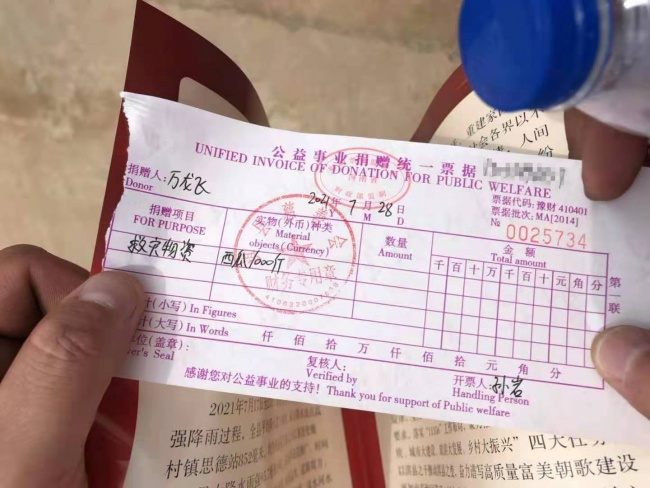 公益事业捐赠统一票据
UNIFIED INVOICE OF DONATION FOR PUBLIC WELFARE
捐赠人：万龙飞
Donor
2021年7月28日
M D
票据代码：豫财 410401
票据批次：MA[2014]
№ 0025734
捐赠项目
FOR PURPOSE
实物(外币)种类
Material
objects(Currency)
数量
Amount
金额
Total amount
千百十万千百十元角分
救灾物资 西瓜1000斤
财务专用章
计(小写) In Figures
计(大写) In Words 仟 佰 拾 万 仟 佰 拾 元 角 分
位(盖章)：
er's Seal
复核人：
Verified by
开票人：孙岩
Handling Person
感谢您对公益事业的支持！Thank you for support of Public welfare
第一联
重建家
社会各界以不
人间
2021年7月
强降雨过程，
村镇思德站852毫米
乡村大振兴”四大
高质量富美朝歌建设